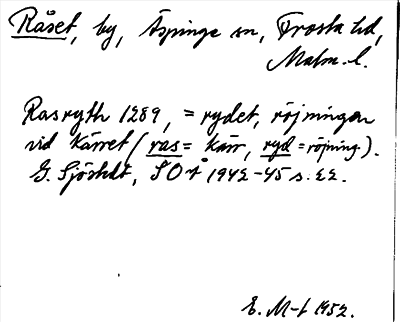 Råset, by, Äspinge sn, Frosta hd,
Malm. l.
Rasryth 1289, = rydet, röjningen
vid kärret (ras = kärr, ryd = röjning).
G. Sjöstedt, SOÅ 1942-45 s. 22.
E. M-t 1952.